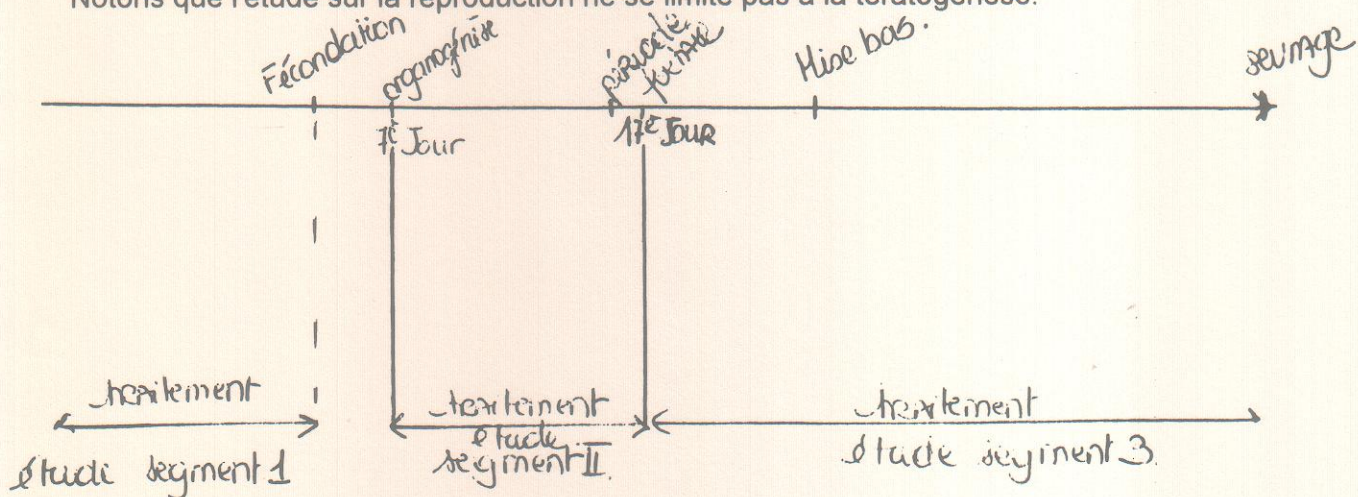 Notons que l'étude sur la reproduction ne se limite pas à la tératogénèse.
Fécondation
organogénèse
période
foetale
Mise bas.
sevrage
7e Jour
17e JOUR
traitement
étude segment 1
traitement
étude
segment II
traitement
étude segment 3.